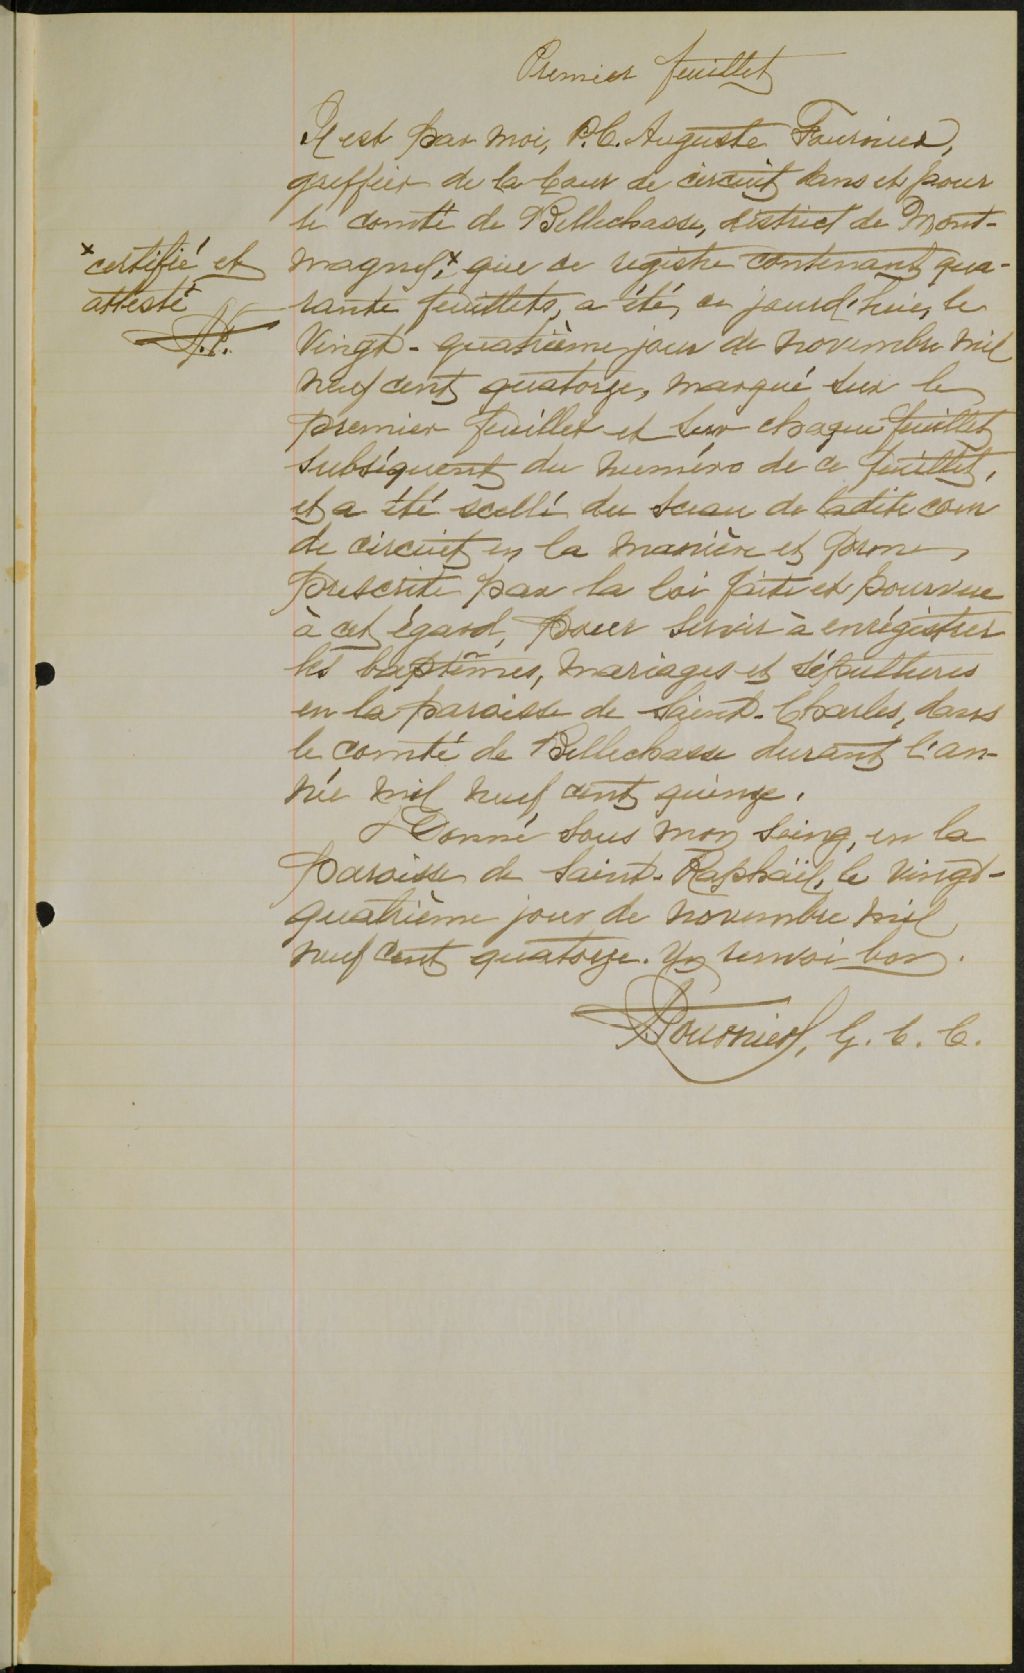 Premier feuillet
Il est par moi, P. C. Auguste Fournier,
greffier de la Cour de circuit dans et pour
le comté de Bellechasse, district de Mont-
magny, x que ce registre contenant qua-
x certifié et
attesté
A.F.
rante feuillets, a été, ce jourd'hui, le
Vingt-quatrième jour de novembre mil
neuf cent quatorze, marqué sur le
premier feuillet et sur chaque feuillet
subséquent du numéro de ce feuillet,
et a été scellé du sceau de ladite cour
de circuit en la manière et forme,
prescrite par la loi faite et pourvue
à cet égard, pour servir à enrégistrer
les baptêmes, mariages et sépultures
en la paroisse de Saint-Charles, dans
le comté de Bellechasse durant l'an-
née mil neuf cent quinze.
Donné sous mon seing, en la
paroisse de Saint-Raphaël, le vingt-
quatrième jour de novembre mil
neuf cent quatorze. Un renvoi bon.
A. Fournier, G. C. C.